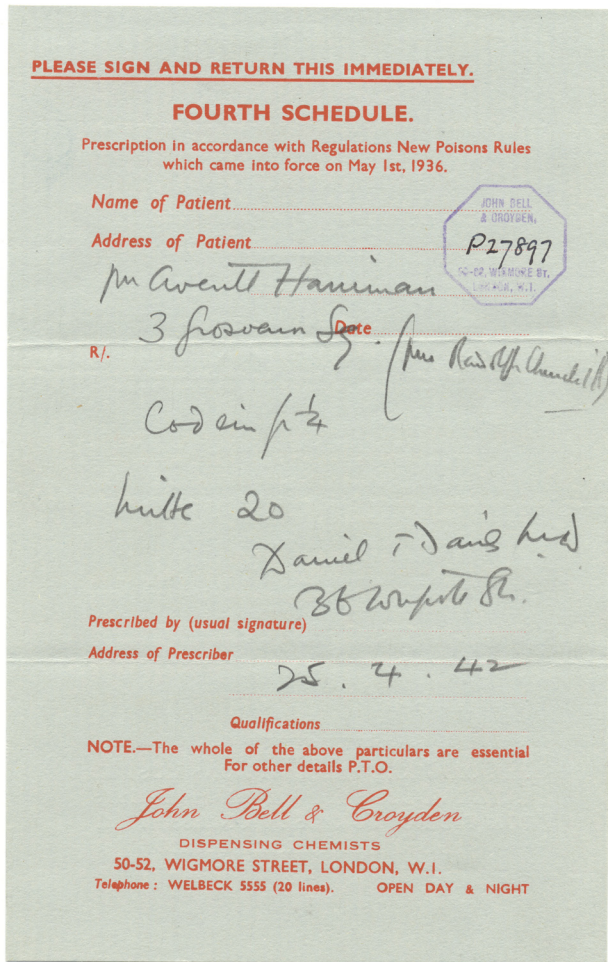 PLEASE SIGN AND RETURN THIS IMMEDIATELY.
FOURTH SCHEDULE.
Prescription in accordance with Regulations New Poisons Rules
which came into force on May 1st, 1936.
Name of Patient
JOHN BELL
& CROYDEN,
P27897
50-52, WIGMORE ST,
LONDON, W.I.
Address of Patient
Mr Averell Harriman
3 Grosvenor Sq.
Date
(Mrs Randolph Churchill)
R/.
Codein gr ¼
Mitte 20
Daniel T Davies M.D
36 Wimpole St.
Prescribed by (usual signature)
Address of Prescriber
25. 4. 42
Qualifications
NOTE.—The whole of the above particulars are essential
For other details P.T.O.
John Bell & Croyden
DISPENSING CHEMISTS
50-52, WIGMORE STREET, LONDON, W.I.
Telephone : WELBECK 5555 (20 lines). OPEN DAY & NIGHT